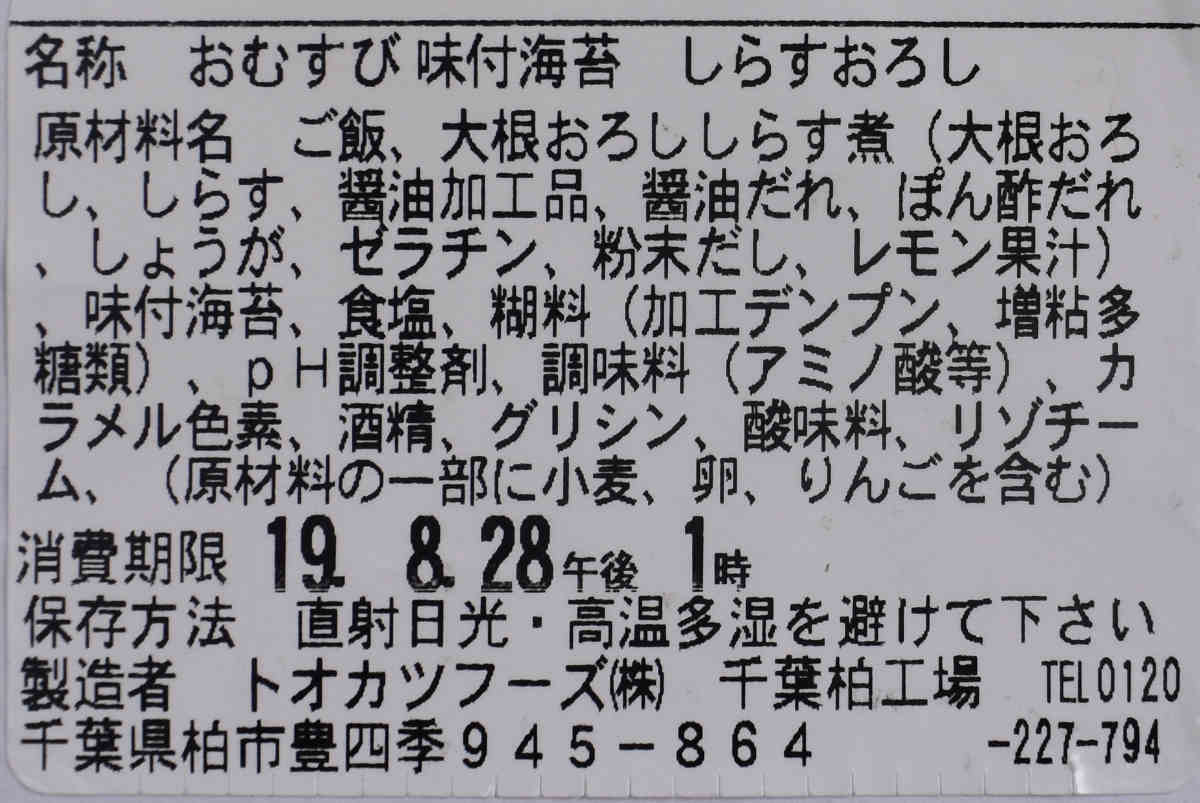 名称　おむすび 味付海苔　しらすおろし
原材料名　ご飯、大根おろししらす煮（大根おろ
し、しらす、醤油加工品、醤油だれ、ぽん酢だれ
、しょうが、ゼラチン、粉末だし、レモン果汁）
、味付海苔、食塩、糊料（加工デンプン、増粘多
糖類）、ｐＨ調整剤、調味料（アミノ酸等）、カ
ラメル色素、酒精、グリシン、酸味料、リゾチー
ム、（原材料の一部に小麦、卵、りんごを含む）
消費期限　19. 8. 28 午後　1時
保存方法　直射日光・高温多湿を避けて下さい
製造者　トオカツフーズ㈱　千葉柏工場　TEL0120
千葉県柏市豊四季９４５－８６４　-227-794